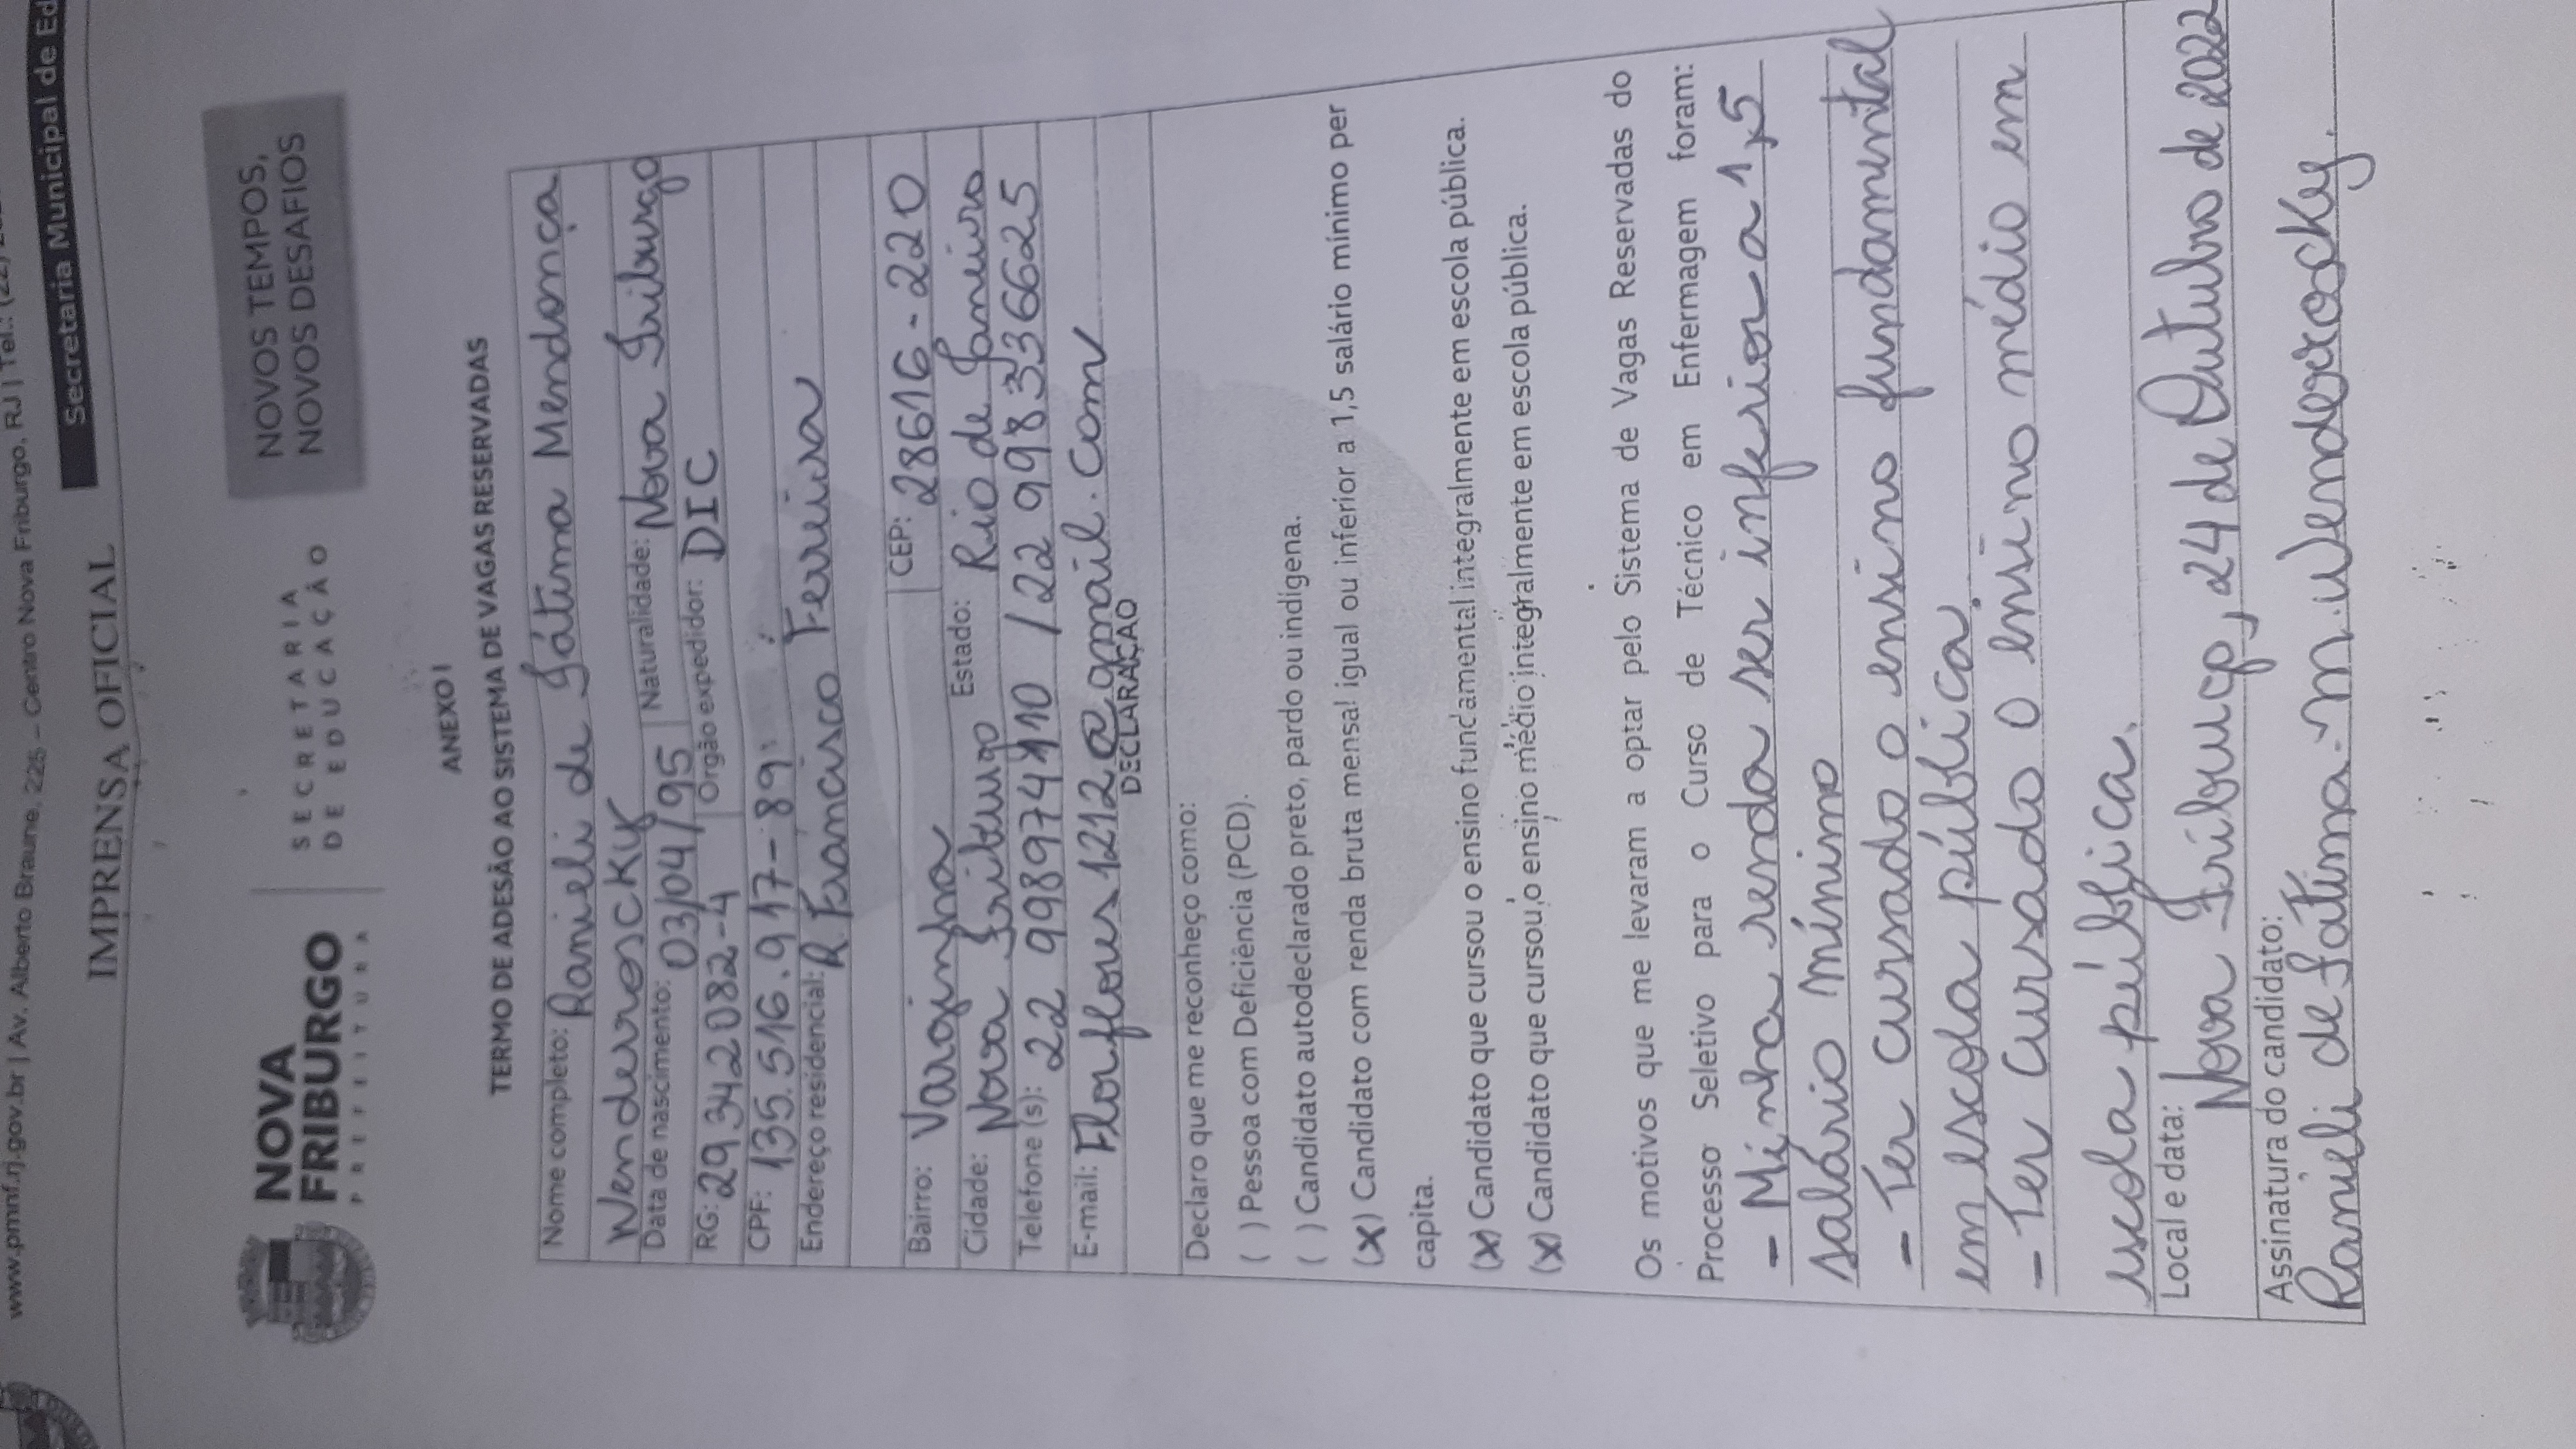 www.pmnf.rj.gov.br | Av. Alberto Braune, 225 – Centro Nova Friburgo, RJ | Tel.: (22)
Secretaria Municipal de Ed
IMPRENSA OFICIAL
NOVA
FRIBURGO
PREFEITURA
SECRETARIA
DE EDUCAÇÃO
NOVOS TEMPOS,
NOVOS DESAFIOS
ANEXO I
TERMO DE ADESÃO AO SISTEMA DE VAGAS RESERVADAS
Nome completo: Ranieli de Fátima Mendonça
Wenderroscky
Data de nascimento: 03/04/95 Naturalidade: Nova Friburgo
RG: 29342082-4 Órgão expedidor: DIC
CPF: 135.516.917-89
Endereço residencial: R. Francisco Ferreira
Bairro: Varginha CEP: 28616-220
Cidade: Nova Friburgo Estado: Rio de Janeiro
Telefone (s): 22 998974110 / 22 998336625
E-mail: Florflores1212@gmail.com
DECLARAÇÃO
Declaro que me reconheço como:
( ) Pessoa com Deficiência (PCD).
( ) Candidato autodeclarado preto, pardo ou indígena.
(X) Candidato com renda bruta mensal igual ou inferior a 1,5 salário mínimo per
capita.
(X) Candidato que cursou o ensino fundamental integralmente em escola pública.
(X) Candidato que cursou o ensino médio integralmente em escola pública.
Os motivos que me levaram a optar pelo Sistema de Vagas Reservadas do
Processo Seletivo para o Curso de Técnico em Enfermagem foram:
- Minha renda ser inferior a 1,5
salário mínimo
- Ter cursado o ensino fundamental
em escola pública.
- Ter cursado o ensino médio em
escola pública.
Local e data: Nova Friburgo, 24 de Outubro de 2022
Assinatura do candidato:
Ranieli de Fátima. M. Wenderroscky.